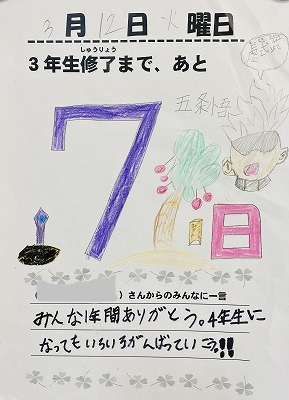 3月12日火曜日
しゅうりょう
3年生修了まで、あと
五条悟
7日
( ）さんからのみんなに一言
みんな1年間ありがとう。4年生に
なってもいろいろがんばっていこう!!